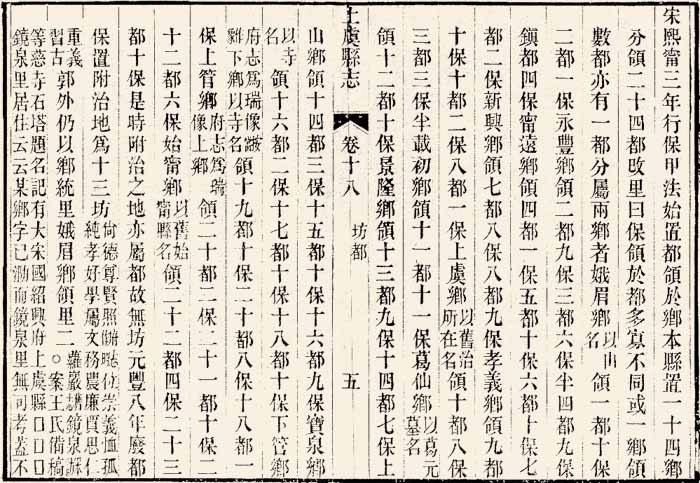 宋熙甯三年行保甲法始置都領於鄉本縣置一十四鄉
分領二十四都改里曰保領於都多寡不同或一鄉領
數都亦有一都分屬兩鄉者娥眉鄉以山名領一都十保
二都一保永豐鄉領二都九保三都六保半四都九保
鎮都四保甯遠鄉領四都一保五都十保六都十保七
都二保新興鄉領七都八保八都九保孝義鄉領九都
十保十都二保八都一保上虞鄉以舊治所在名領十都八保
三都三保半載初鄉領十一都十一保葛仙鄉以葛元墓名
領十二都十保景隆鄉領十三都九保十四都七保上
上虞縣志 卷十八 坊都 五
山鄉領十四都三保十五都十保十六都九保寶泉鄉
以寺名領十六都二保十七都十保十八都十保下管鄉
府志爲瑞像鄉雖下鄉以寺名領十九都十保二十都八保十八都一
保上管鄉府志爲瑞像上鄉領二十都二保二十一都十保二
十二都六保始甯鄉以舊始甯縣名領二十二都四保二十三
都十保是時附治之地亦屬都故無坊元豐八年廢都
保置附治地爲十三坊尚德尊賢照 崇義恤孤純孝好學屬文務農廉賈思仁
重義郭外仍以鄉統里娥眉鄉領里二蘿巖鏡泉○案王氏備稿
習古等慈寺石塔題名記有大宋國紹興府上虞縣□□□
鏡泉里居住云云某鄉字已泐而鏡泉里無可考蓋不